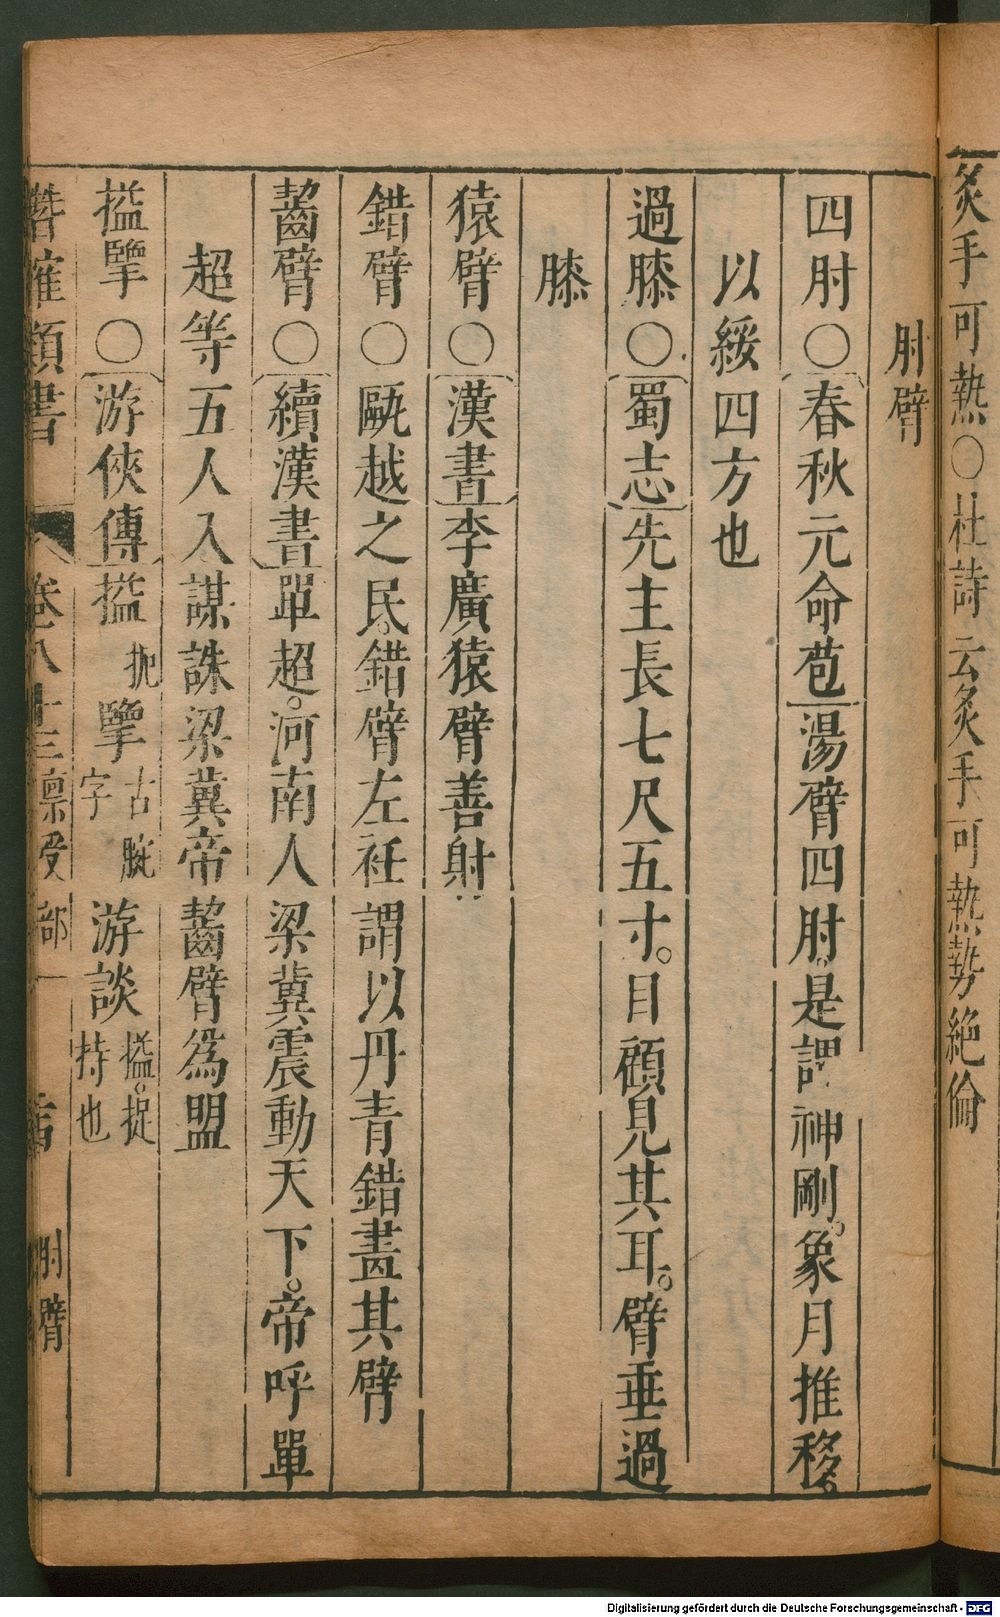 炙手可熱○杜詩云炙手可熱勢絶倫
肘臂
四肘○春秋元命苞湯臂四肘。是謂神剛。象月推移。
以綏四方也
過膝○蜀志先主長七尺五寸。目顧見其耳。臂垂過
膝
猿臂○漢書李廣猿臂善射
錯臂○甌越之民。錯臂左衽謂以丹青錯畫其臂
齧臂○續漢書單超。河南人梁冀震動天下。帝呼單
超等五人入謀誅梁冀帝齧臂爲盟
搤掔○游俠傳搤扼掔古腕字游談搤。捉持也
潛確類書 卷八十三稟受部一 肘臂
Digitalisierung gefördert durch die Deutsche Forschungsgemeinschaft - DFG